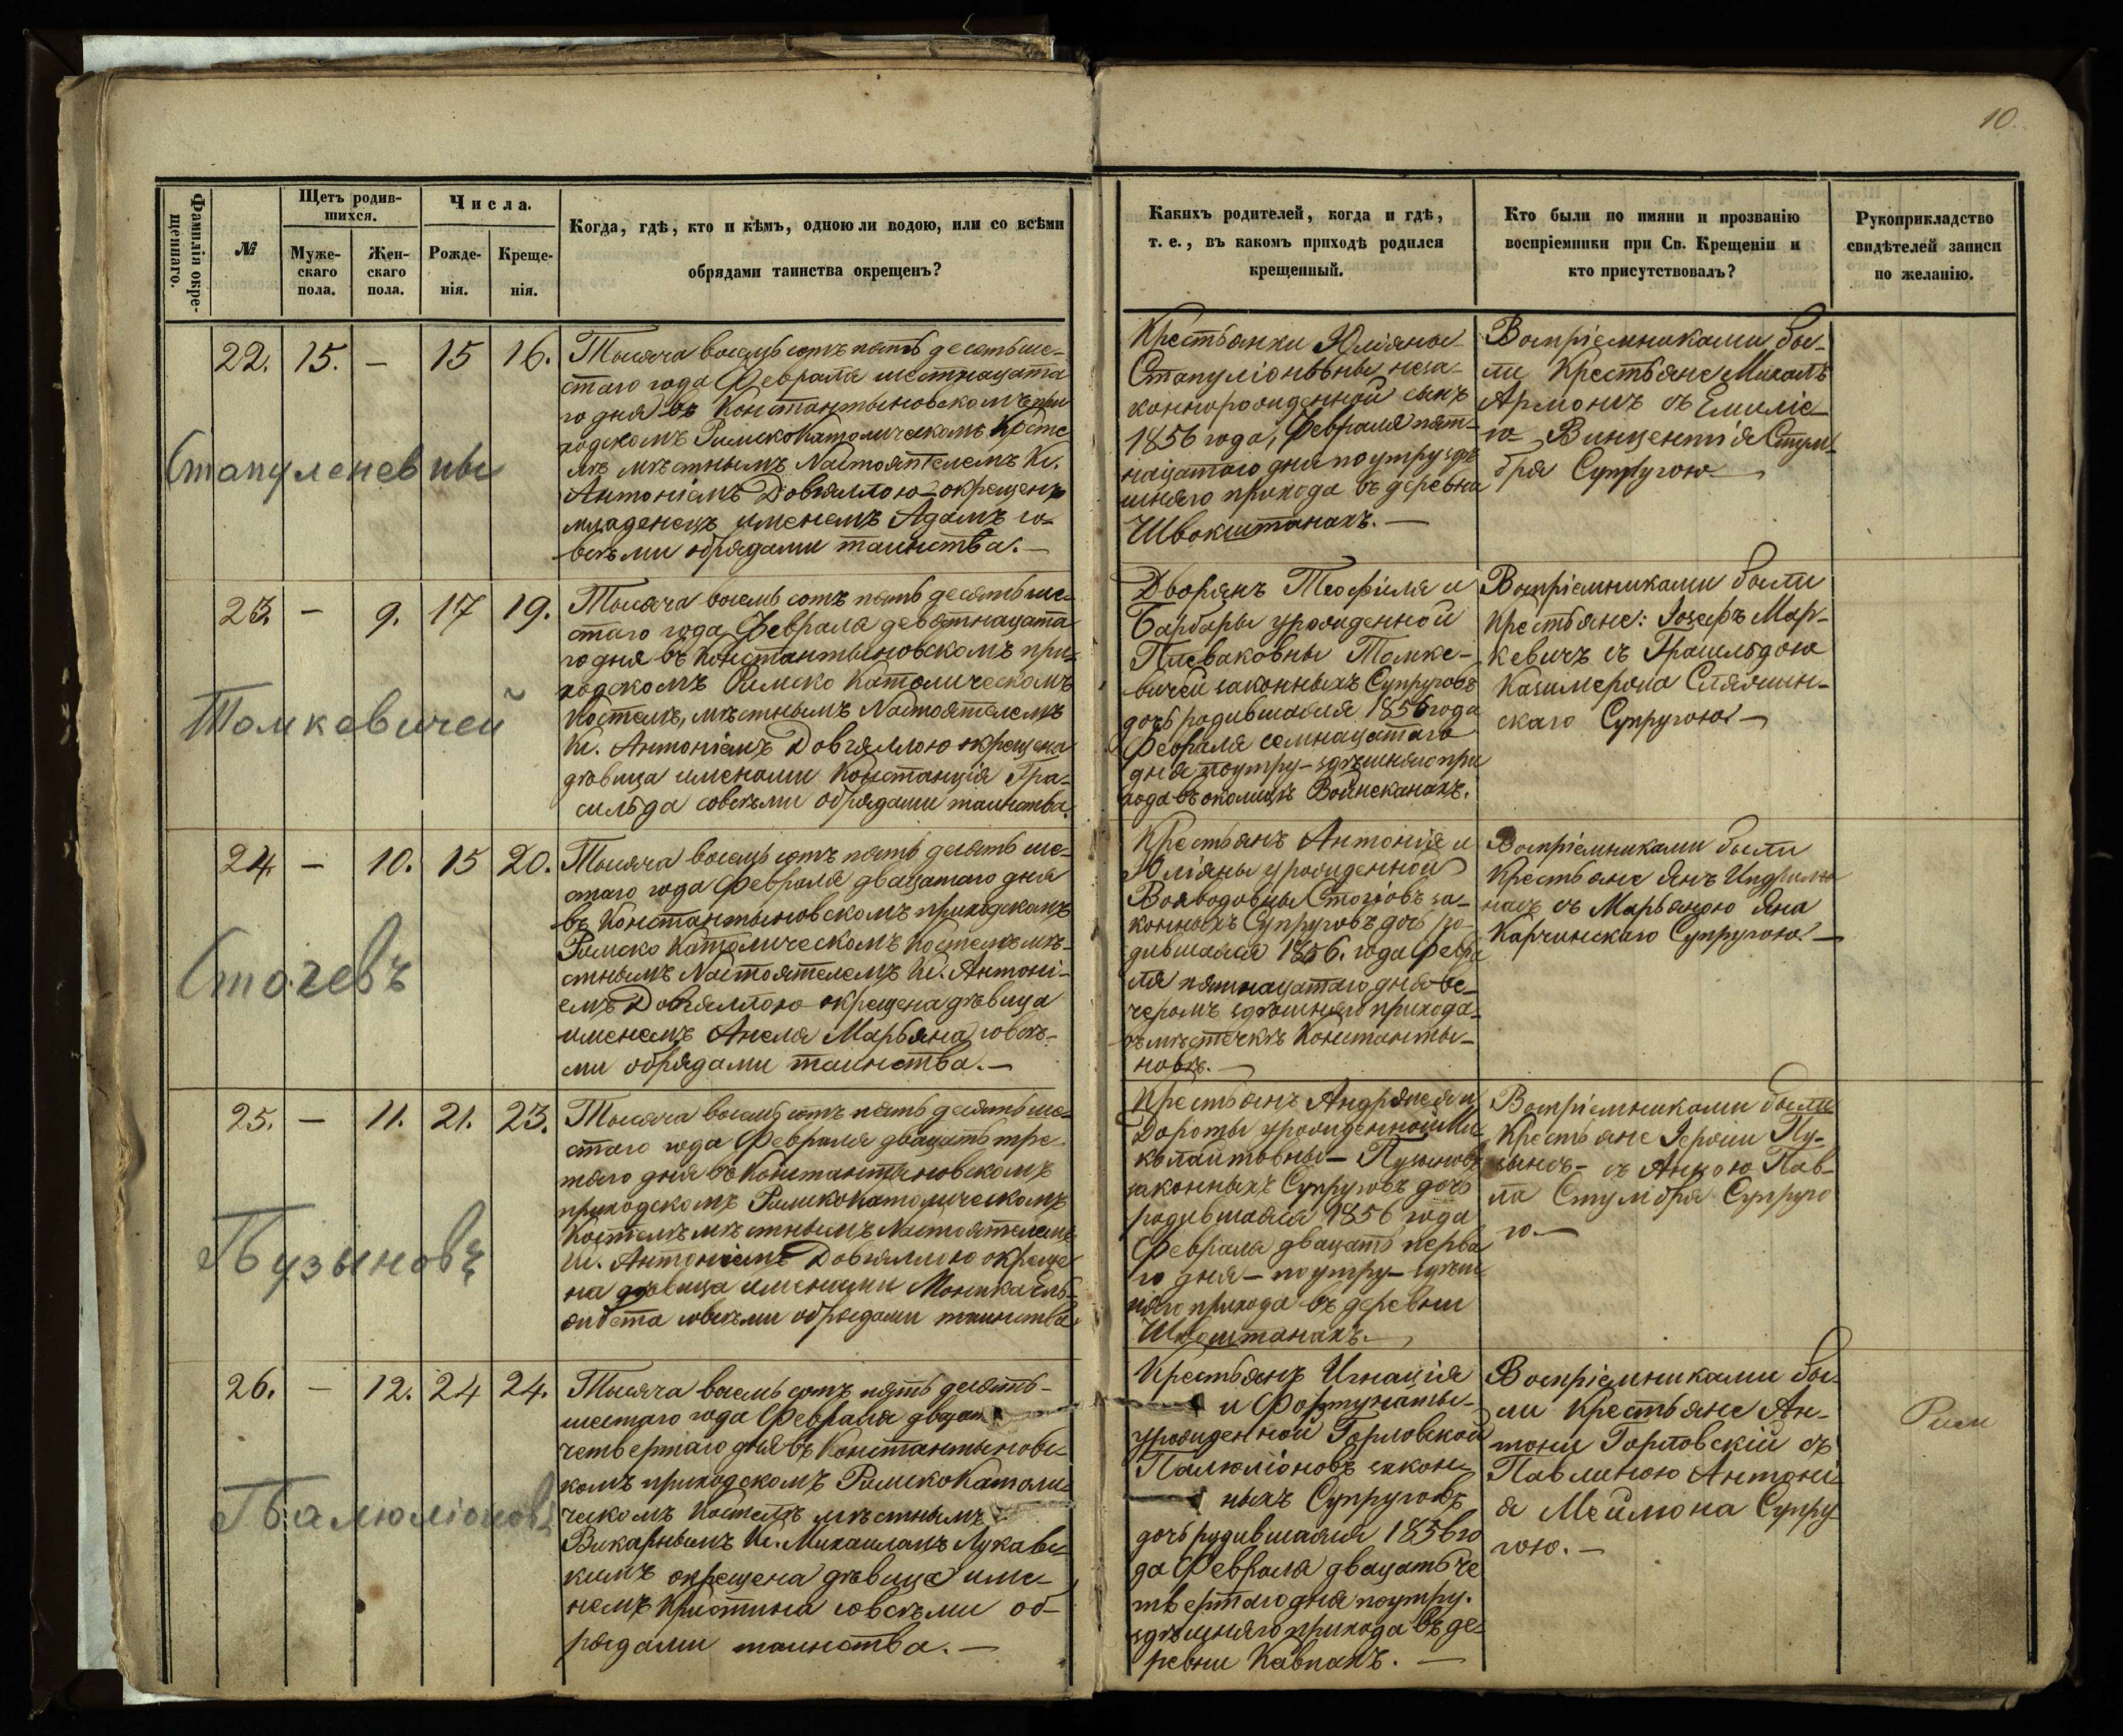 10.
Фамиліи окре-
щеннаго.
№
Щетъ родив-
шихся.
Муже-
скаго
пола.
Жен-
скаго
пола.
Числа.
Рожде-
нія.
Креще-
нія.
Когда, гдѣ, кто и кѣмъ, одною ли водою, или со всѣми
обрядами таинства окрещенъ?
Какихъ родителей, когда и гдѣ,
т. е., въ какомъ приходѣ родился
крещенный.
Кто были по имяни и прозванію
воспріемники при Св. Крещеніи и
кто присутствовалъ?
Рукоприкладство
свидѣтелей записи
по желанію.
22. 15. – 15 16.
Стапуленевны
Тысяча восемь сотъ пять десять ше-
стаго года Февраля шестнацата
го дня въ Константыновскомъ при
ходскомъ Римско Католическомъ Косте
лѣ мѣстнымъ Настоятелемъ Кс.
Антоніемъ Довгяллою окрещенъ
младенецъ именемъ Адамъ со
всѣми обрядами таинства. –
Крестьянки Юліяны
Стапуліоновны неза-
коннорожденной сынъ
1856 года, Февраля пят-
нацатаго дня по утру здѣ
шняго прихода въ деревни
Швокштанахъ. –
Воспріемниками бы-
ли Крестьяне Михалъ
Армонъ съ Емиліе-
ю Винцентія Стум-
бря Супругою –
23. – 9. 17 19.
Томкевичей
Тысяча восемь сотъ пять десять ше-
стаго года Февраля девятнацата
го дня въ Константыновскомъ при-
ходскомъ Римско Католическомъ
Костелѣ, мѣстнымъ Настоятелемъ
Кс. Антоніемъ Довгяллою окрещена
дѣвица именами Констанція Гра-
сильда совсѣми обрядами таинства.
Дворянъ Теофиля и
Барбары урожденной
Пневаковны Томке-
вичей законныхъ Супруговъ
дочь родившаяся 1856 года
Февраля семнацатаго
дня поутру – здѣшняго при
хода въ околицѣ Войнсканахъ.
Воспріемниками были
Крестьяне: Іозефъ Мар-
кевичъ съ Грасильдою
Казимерола
скаго Супругою –
24. – 10. 15 20.
Стогевъ
Тысяча восемь сотъ пять десять ше-
стаго года Февраля двацатаго дня
въ Константыновскомъ приходскомъ
Римско Католическомъ Костелѣ мѣ-
стнымъ Настоятелемъ Кс. Антоні-
емъ Довгяллою окрещена дѣвица
именемъ Анеля Марьяна совсѣ-
ми обрядами таинства. –
Крестьянъ Антонія и
Юліяны урожденной
Вояводовны Стогіовъ за-
конныхъ Супруговъ дочь ро-
дившаяся 1856. года Февра
ля пятнацатаго дня ве-
черомъ здѣшняго прихода
въ мѣстечкѣ Константы-
новѣ. –
Воспріемниками были
Крестьяне Янъ
насъ съ Марьяною Яна
Карчинскаго Супругою. –
25. – 11. 21. 23.
Пузыновъ
Тысяча восемь сотъ пять десять ше-
стаго года Февраля двацать тре-
тяго дня въ Константыновскомъ
приходскомъ Римско Католическомъ
Костелѣ мѣстнымъ Настоятелемъ
Кс. Антоніемъ Довгяллою окреще
на дѣвица именами Моника Ель-
жбета совсѣми обрядами таинства
Крестьянъ Андрея и
Дороты урожденной Ми-
Пузыновъ
законныхъ Супруговъ дочь
родившаяся 1856 года
Февраля двацать перва
го дня – поутру – здѣш
няго прихода въ деревни
Швокштанахъ. –
Воспріемниками были
Крестьяне Героним Пу-
зынъ – съ Анною Пав-
ла Стумбря Супруго
ю. –
26. – 12. 24 24.
Палюліоновъ
Тысяча восемь сотъ пять десять-
шестаго года Февраля двацать
четвертаго дня въ Константыновс-
комъ приходскомъ Римско Католи-
ческомъ Костелѣ мѣстнымъ
Викарнымъ Кс. Михаиломъ Лукавс-
кимъ окрещена дѣвица име-
немъ Кристина совсѣми об-
рядами таинства. –
Крестьянъ Игнація
и Фортунаты
урожденной Горловской
Палюліоновъ закон-
ныхъ Супруговъ
дочь родившаяся 1856 го
да Февраля двацать че
твертаго дня поутру.
здѣшняго прихода въ де-
ревни Кавнанъ. –
Воспріемниками бы-
ли Крестьяне Ан-
тони Горловскій съ
Павлиною Антоні-
я Мейлюна Супру
гою. –